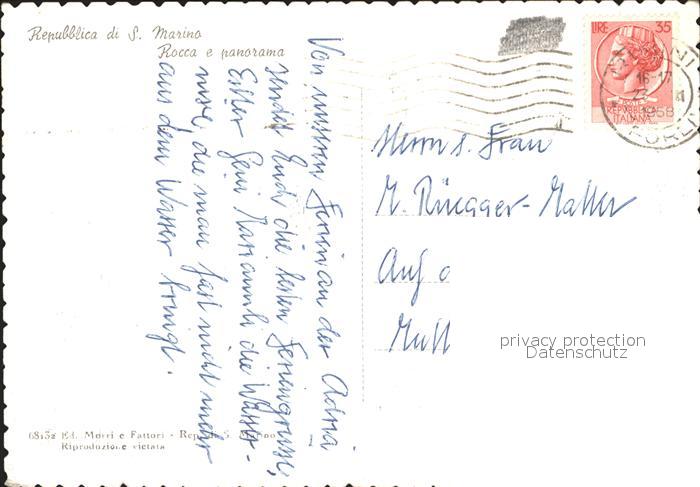 Repubblica di S. Marino
Rocca e panorama
LIRE 35
16-17
1958
FORLI
POSTE
REPUBBLICA
ITALIANA
Von unseren Ferien an der Adria
sendet Euch die besten Feriengrüsse,
Esther Gein Mariannli die Wasser-
nixe, die man fast nicht mehr
aus dem Wasser bringt.
Herrn u. Frau
M. Rüegger-Matter
Auf o
68132 Ed. Morri e Fattori - Rep. S. Marino
Riproduzione vietata
privacy protection
Datenschutz